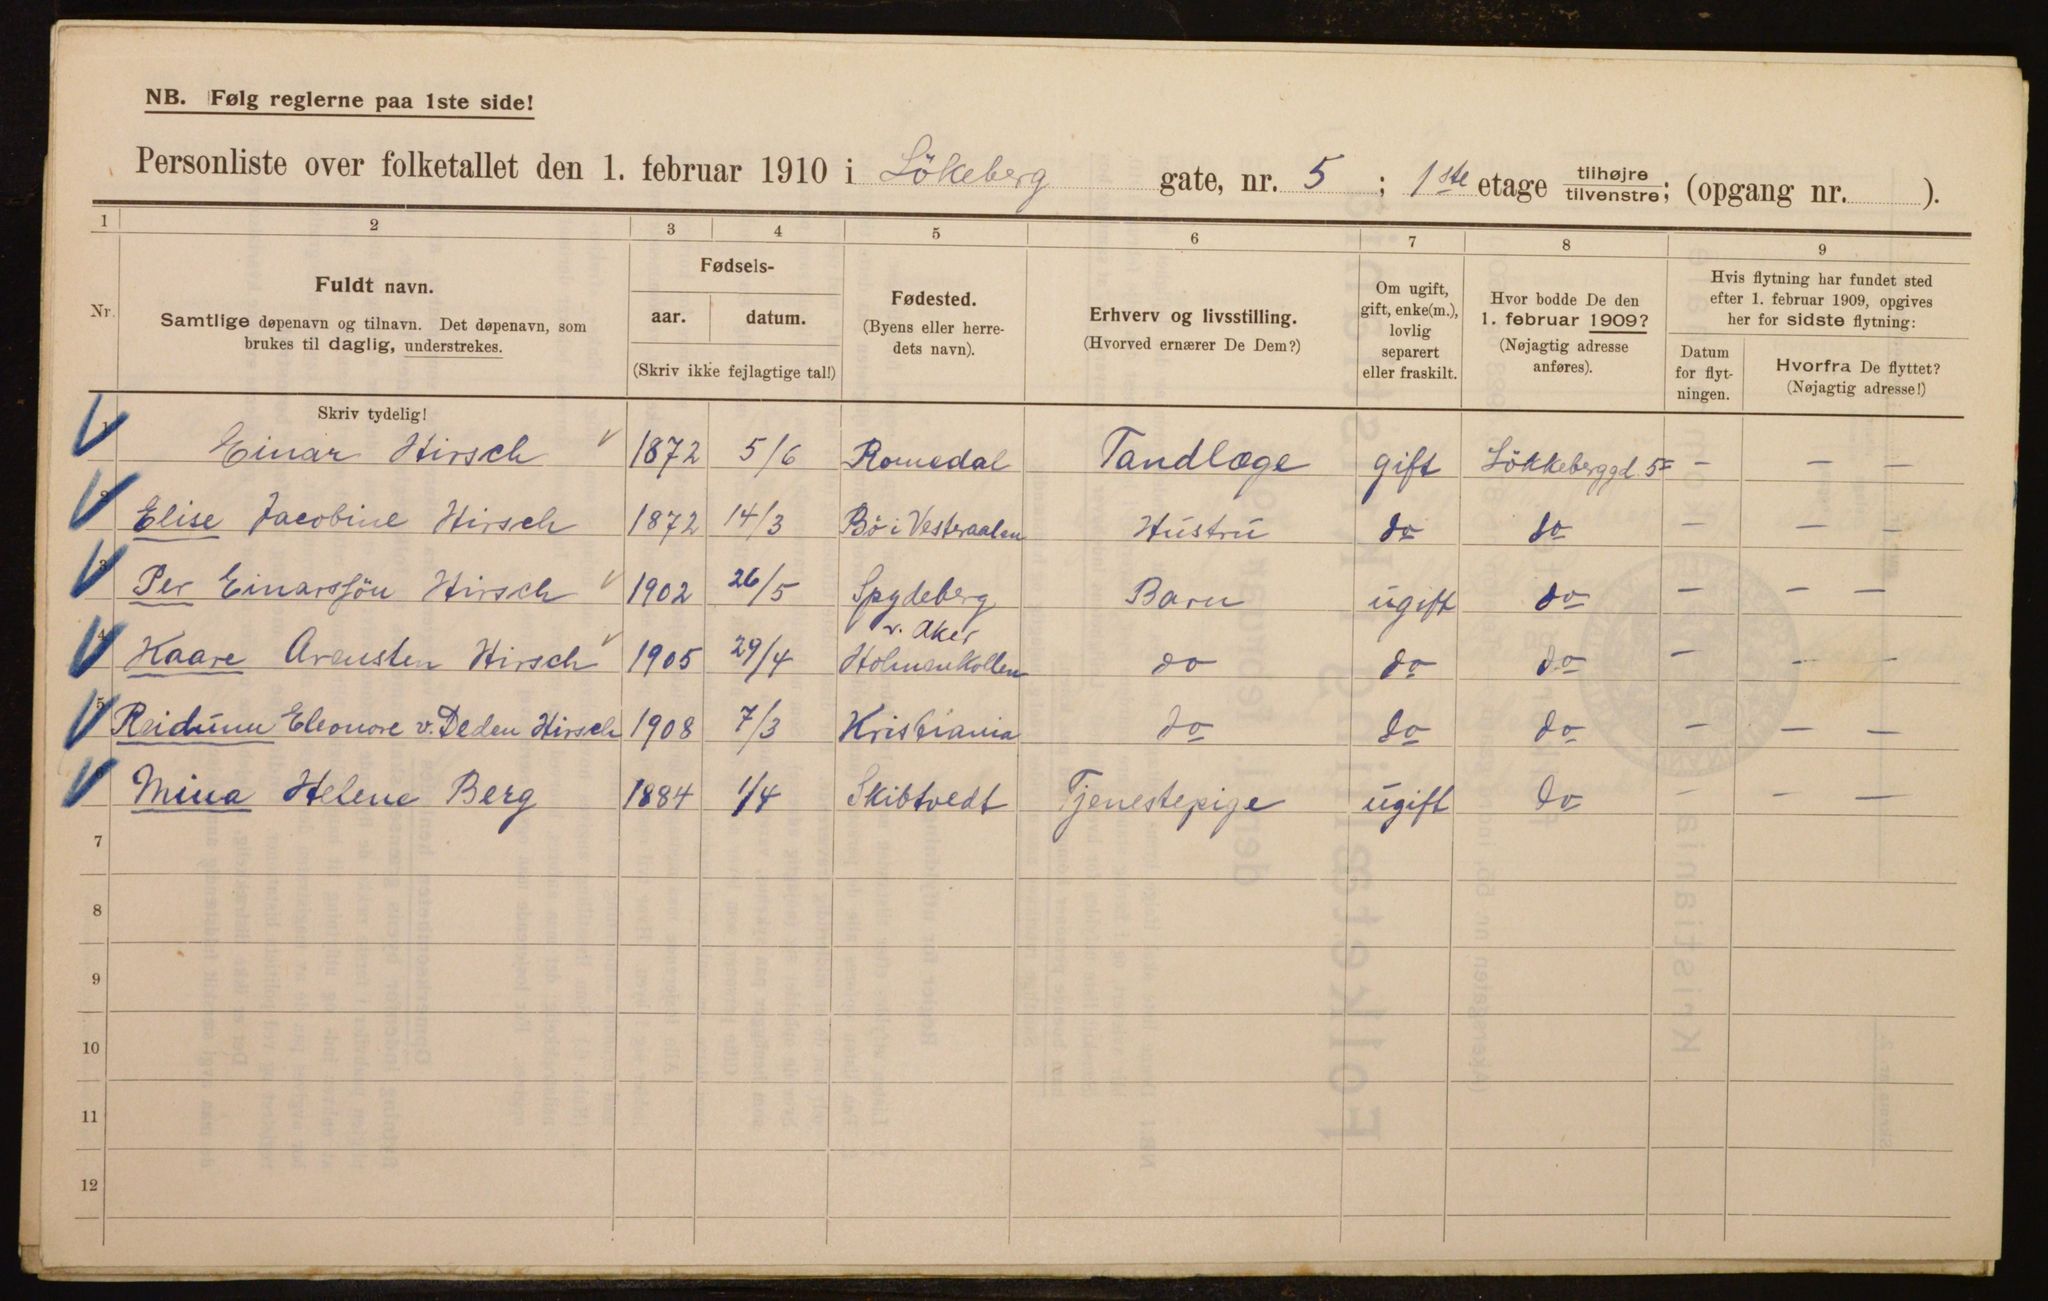 NB. Følg reglerne paa 1ste side!
Personliste over folketallet den 1. februar 1910 i Lökeberg gate, nr. 5 ; 1ste etage tilhøjre tilvenstre; (opgang nr. ).
1 2 3 4 5 6 7 8 9
Nr.
Fuldt navn.
Samtlige døpenavn og tilnavn. Det døpenavn, som
brukes til daglig, understrekes.
Skriv tydelig!
Fødsels-
aar. datum.
(Skriv ikke fejlagtige tal!)
Fødested.
(Byens eller herre-
dets navn).
Erhverv og livsstilling.
(Hvorved ernærer De Dem?)
Om ugift,
gift, enke(m.),
lovlig
separert
eller fraskilt.
Hvor bodde De den
1. februar 1909?
(Nøjagtig adresse
anføres).
Hvis flytning har fundet sted
efter 1. februar 1909, opgives
her for sidste flytning:
Datum
for flyt-
ningen.
Hvorfra De flyttet?
(Nøjagtig adresse!)
1 Einar Hirsch 1872 5/6 Romedal Tandlæge gift Lökkeberggd. 5 — — —
2 Elise Jacobine Hirsch 1872 14/3 Bö i Vesteraalen Hustru do do — — —
3 Per Einarssön Hirsch 1902 26/5 Spydeberg Barn ugift do — — —
4 Kaare Arensten Hirsch 1905 29/4 v. Aker Holmenkollen do do do — — —
5 Reidunn Eleonore v. Deden Hirsch 1908 7/3 Kristiania do do do — — —
6 Mina Helene Berg 1884 1/4 Skibtvedt Tjenestepige ugift do — — —
7
8
9
10
11
12